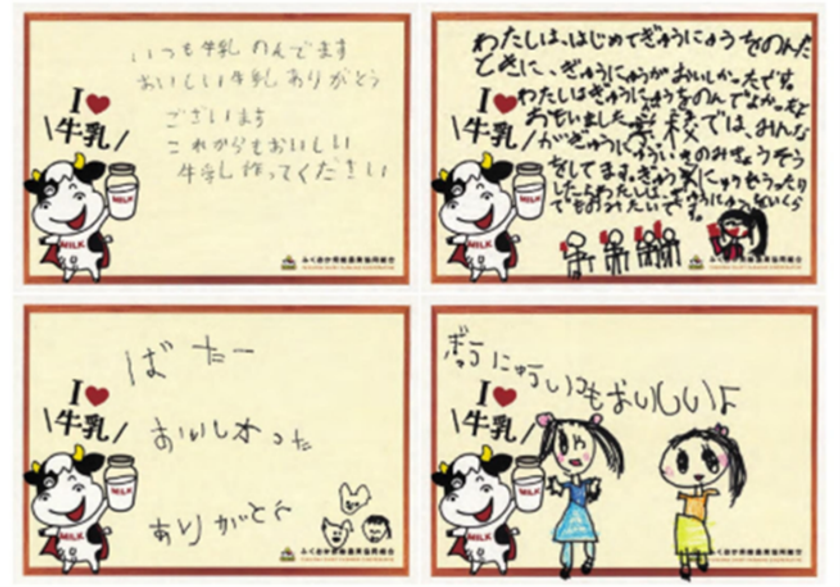 いつも牛乳のんでます
おいしい牛乳ありがとう
ございます
これからもおいしい
牛乳し作ってください
I
牛乳
MILK
MILK
ふくおか県酪農業協同組合
わたしは、はじめてぎゅうにゅうをのんだ
ときに、ぎゅうにゅうがおいしかったです。
わたしはぎゅうにゅうをのんでよかったと
おもいました。学校では、みんな
がぎゅうにゅういつものみきょうそう
をしてます。ぎゅうにゅうもらったり
I
牛乳
MILK
MILK
ふくおか県酪農業協同組合
ばたー
おいしかった
ありがとう
I
牛乳
MILK
MILK
ふくおか県酪農業協同組合
ぎゅうにゅういつもおいしいよ
I
牛乳
MILK
MILK
ふくおか県酪農業協同組合